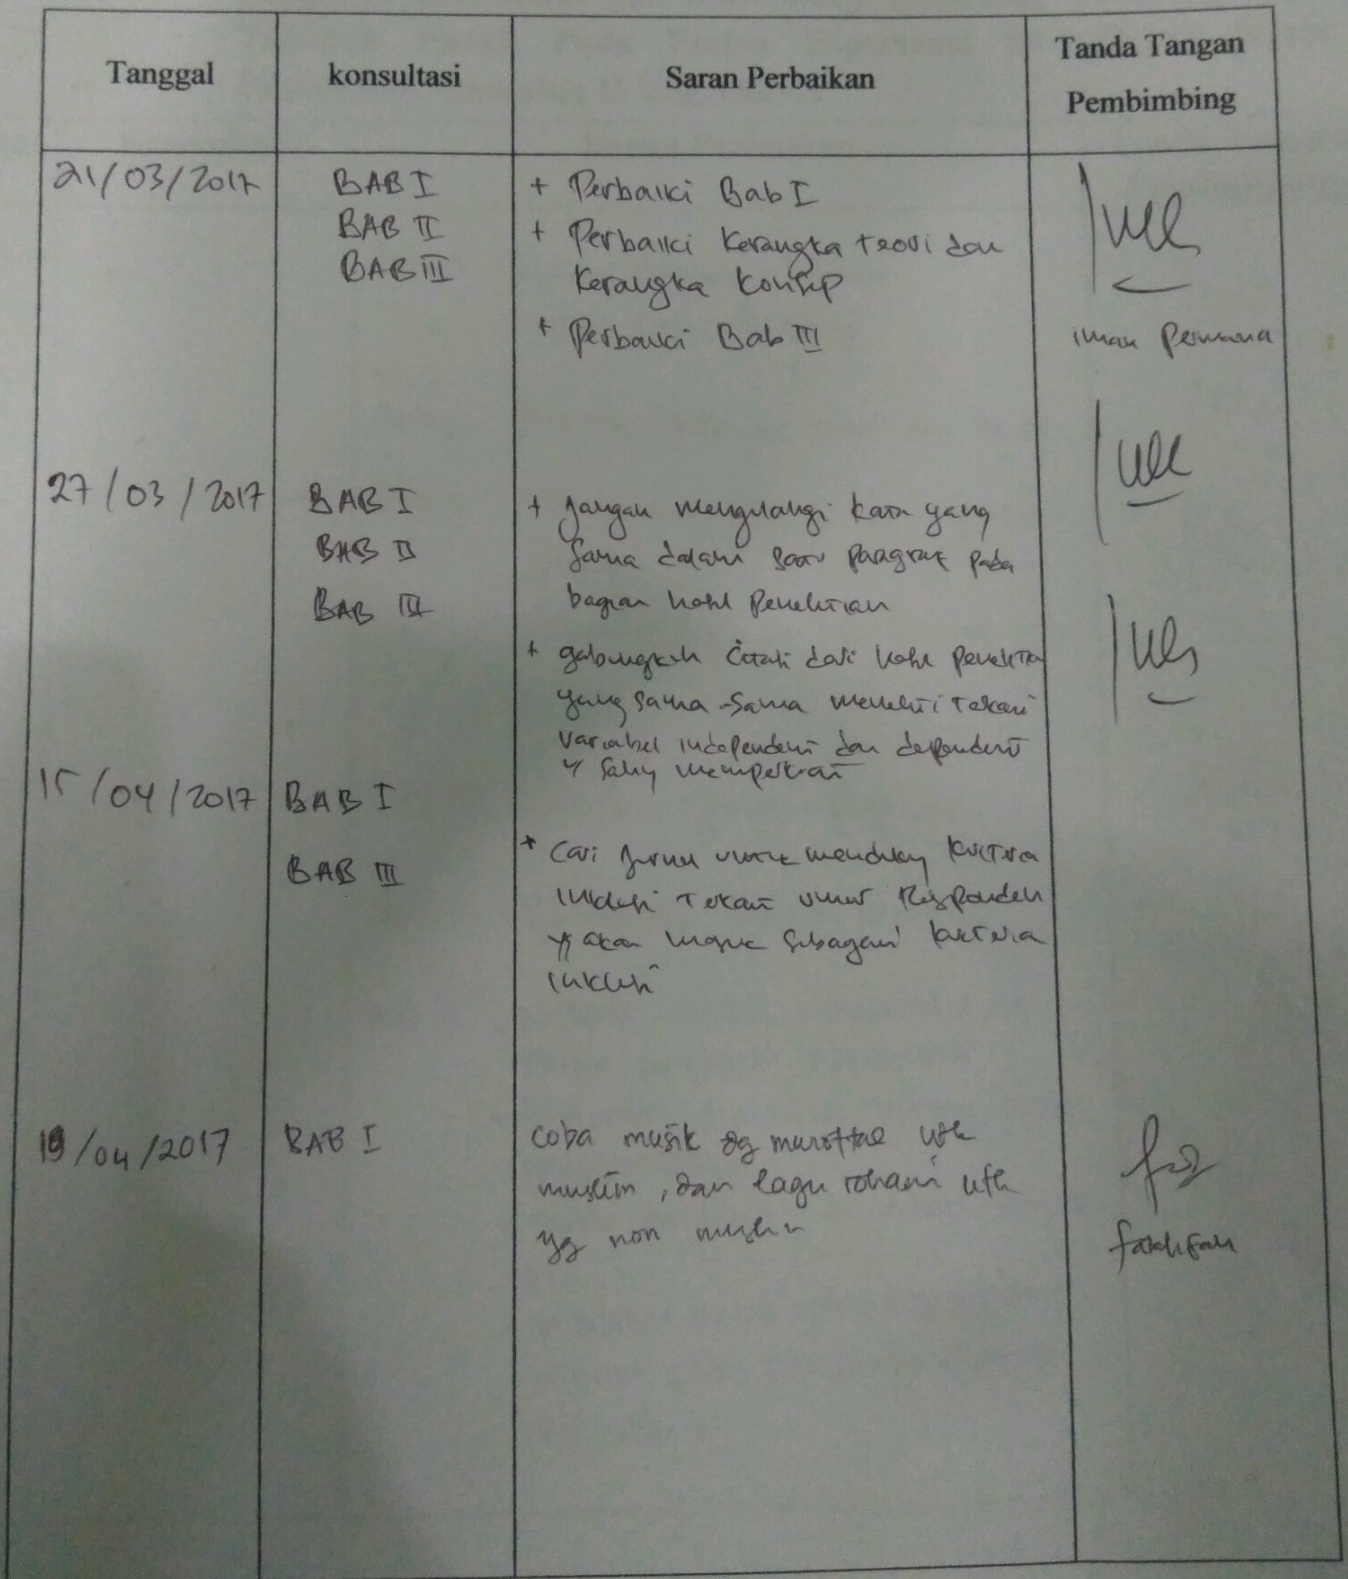 Tanggal
konsultasi
Saran Perbaikan
Tanda Tangan
Pembimbing
21/03/2017
BAB I
BAB II
BAB III
+ Perbaiki Bab I
+ Perbaiki Kerangka teori dan
Kerangka Konsep
+ Perbaiki Bab III
iman Permana
27/03/2017
BAB I
BAB II
BAB III
+ Jangan mengulangi kata yang
sama dalam satu paragraf pada
bagian hasil penelitian
+ gabungkan citasi dari hasil penelitian
yang sama-sama meneliti terkait
variabel independent dan dependent
yg saling memperkuat
15/04/2017
BAB I
BAB III
+ Cari jurnal untuk mendukung kriteria
inklusi terkait umur Responden
yg akan masuk sebagai kriteria
inklusi
19/04/2017
BAB I
coba musik dg murottal utk
muslim, dan lagu rohani utk
yg non muslim